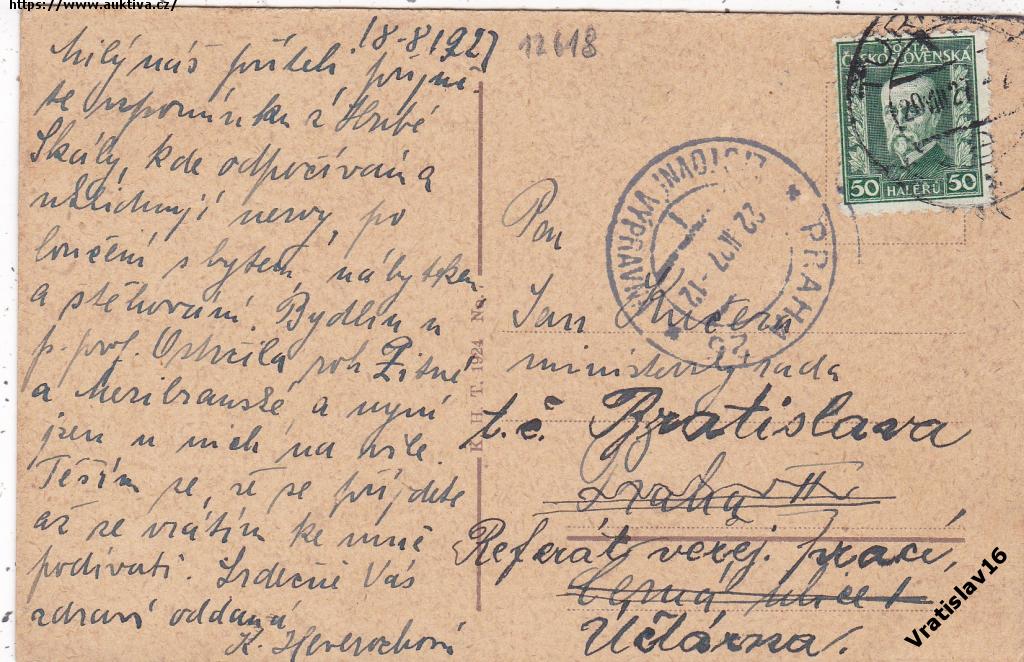 https://www.auktiva.cz/
18-8 1927
12618
Milý náš příteli, přijmě-
te vzpomínku z Hrubé
Skály, kde odpočívám a
uklidňuji nervy, po
loučení s bytem, nábytkem
a stěhování. Bydlím u
p. prof. Ostrčila roh Žitné
a Mezibranské a nyní
jsem u nich na vile.
Těším se, že se přijdete
až se vrátím ke mně
podívati. Srdečně Vás
zdraví oddaná
K. Heverochová
K. H. T. 1924 No.
ČESKOSLOVENSKA
50 HALÉŘŮ 50
20 VIII 27
PRAHA
LISTOVNÍ VÝPRAVNA
22 27 -12
Pan
Jan Kučera
ministerský rada
t.č. Bratislava
Praha II
Referát verej. prací,
Černá ulice 1
Účtárna.
Vratislav16